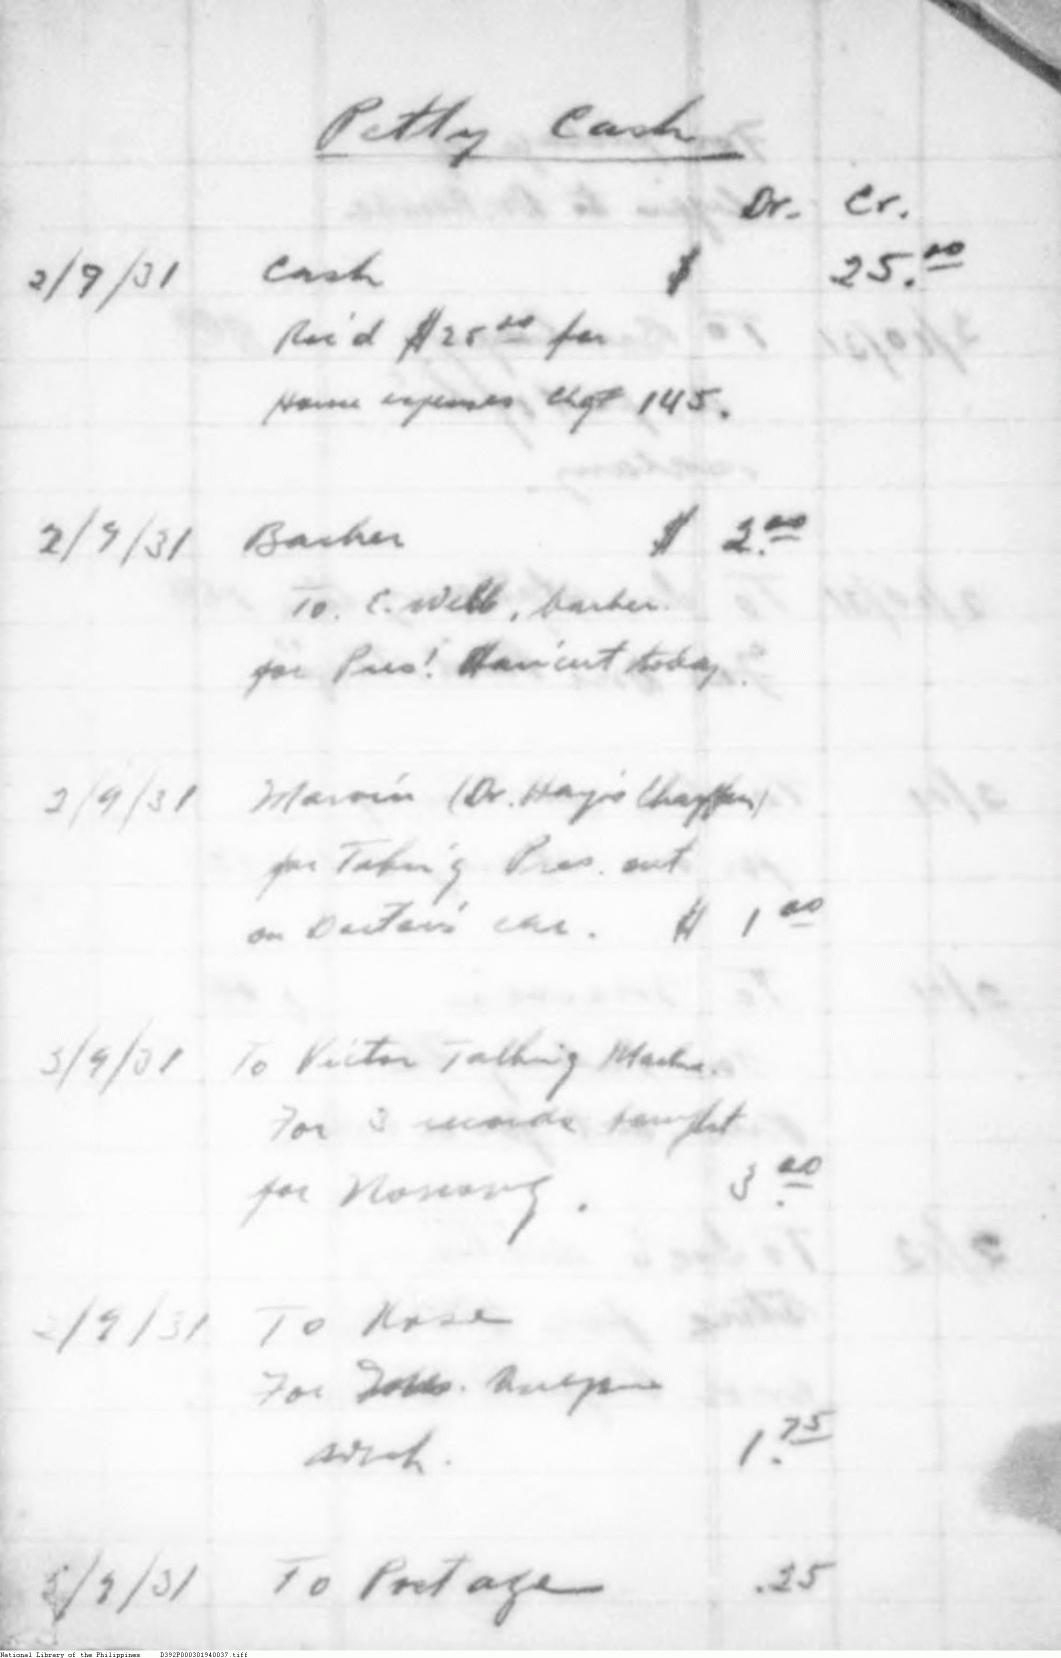 Petty Cash
Dr. Cr.
2/9/31 Cash $ 25.00
Rec'd $25.00 for
Home expenses Chg't 145.
2/9/31 Barber $ 2.00
To. C. Webb, barber.
for Pres! Haircut today.
2/9/31 Marvin (Dr. Hay's
for Taking Pres. out
on Doctor's car. $ 1.00
2/9/31 To Victor Talking Machine.
For 3 records bought
for Nonong. 3.00
2/9/31 To Rose
For
1.75
2/9/31 To Postage .25
National Library of the Philippines D392P000301940037.tiff